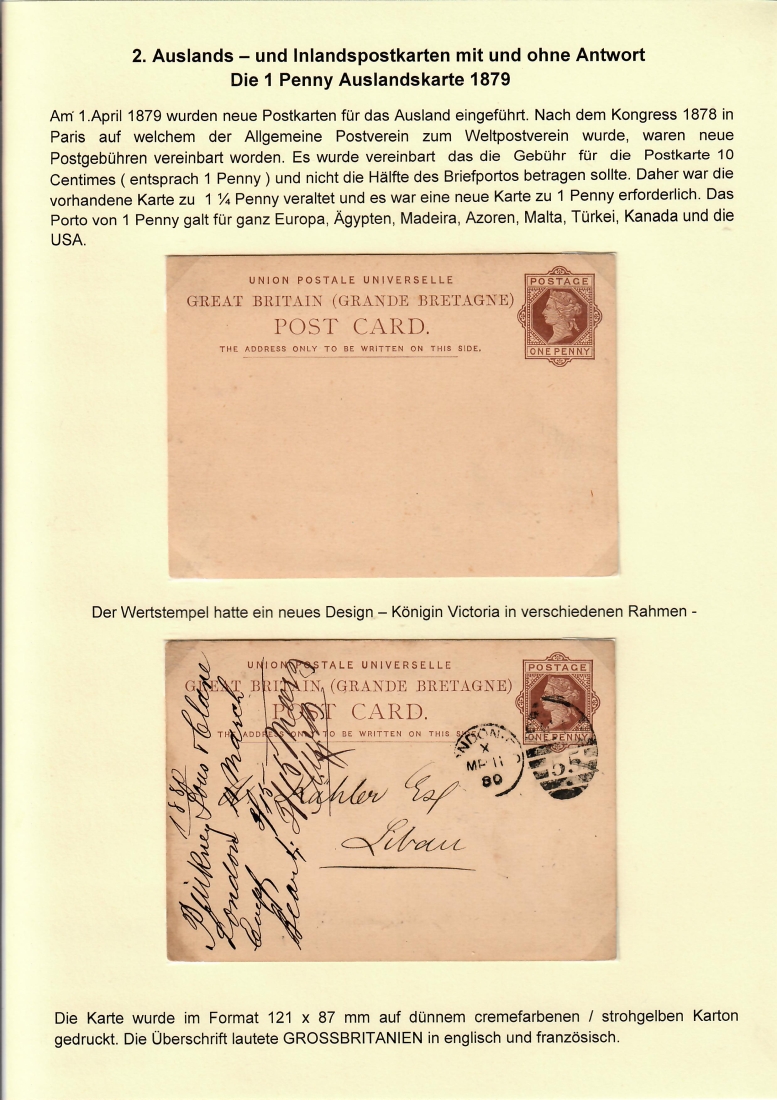 2. Auslands – und Inlandspostkarten mit und ohne Antwort
Die 1 Penny Auslandskarte 1879
Am 1.April 1879 wurden neue Postkarten für das Ausland eingeführt. Nach dem Kongress 1878 in
Paris auf welchem der Allgemeine Postverein zum Weltpostverein wurde, waren neue
Postgebühren vereinbart worden. Es wurde vereinbart das die Gebühr für die Postkarte 10
Centimes ( entsprach 1 Penny ) und nicht die Hälfte des Briefportos betragen sollte. Daher war die
vorhandene Karte zu 1 ¼ Penny veraltet und es war eine neue Karte zu 1 Penny erforderlich. Das
Porto von 1 Penny galt für ganz Europa, Ägypten, Madeira, Azoren, Malta, Türkei, Kanada und die
USA.
UNION POSTALE UNIVERSELLE
GREAT BRITAIN (GRANDE BRETAGNE)
POST CARD.
THE ADDRESS ONLY TO BE WRITTEN ON THIS SIDE.
POSTAGE
ONE PENNY
Der Wertstempel hatte ein neues Design – Königin Victoria in verschiedenen Rahmen -
UNION POSTALE UNIVERSELLE
GREAT BRITAIN (GRANDE BRETAGNE)
POST CARD.
TO BE WRITTEN ON THIS
POSTAGE
ONE PENNY
X
MR 11
80
55
Kahler Esq
Libau
1880
Pinkney Sons &
London 11 March
Die Karte wurde im Format 121 x 87 mm auf dünnem cremefarbenen / strohgelben Karton
gedruckt. Die Überschrift lautete GROSSBRITANIEN in englisch und französisch.